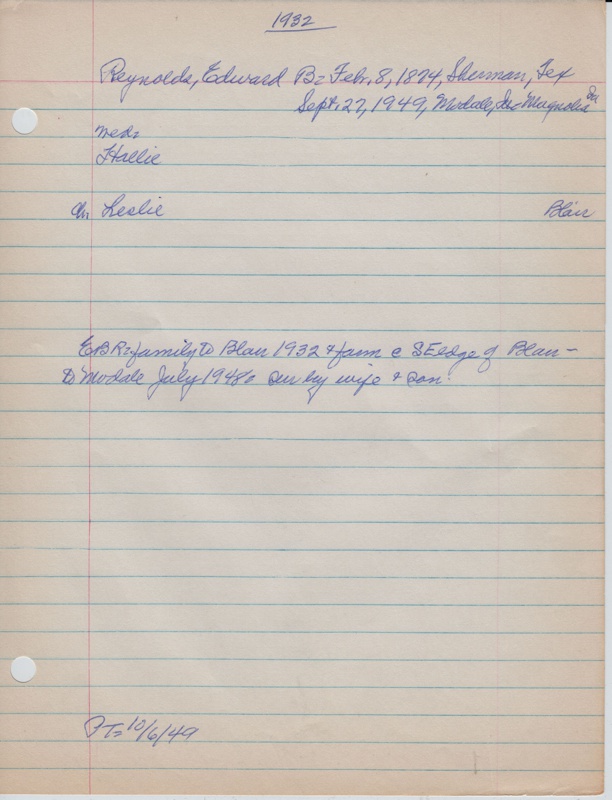 1932
Reynolds, Edward B= Febr. 8, 1874, Sherman, Tex
Sept. 27, 1949, Modale, Ia= Magnolia Ia
med=
Hallie
Ch Leslie Blair
EBR= family to Blair 1932 & farm @ SE edge of Blair -
to Modale July 1948= sur by wife & son.
PT= 10/6/49